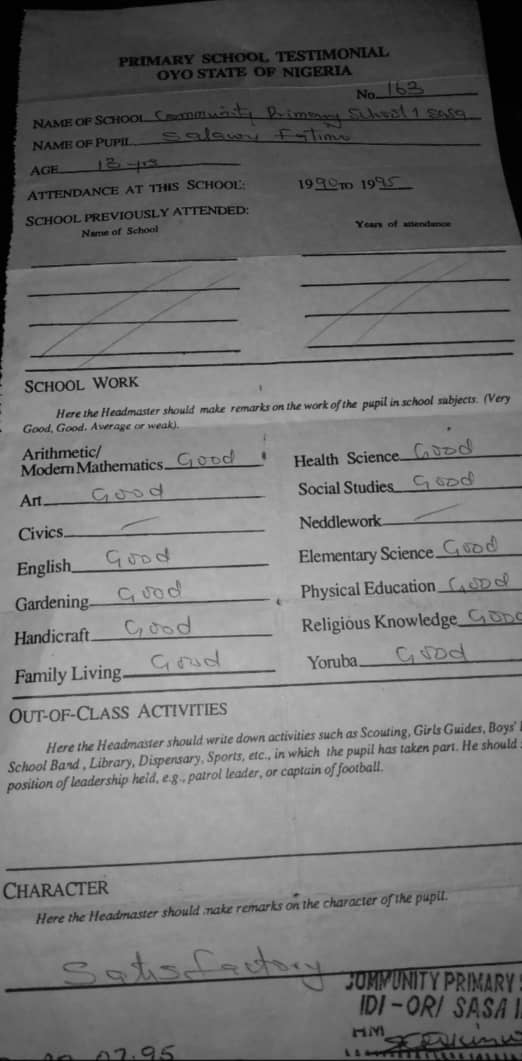 PRIMARY SCHOOL TESTIMONIAL
OYO STATE OF NIGERIA
No. 163
NAME OF SCHOOL Community Primary School 1 Sasa
NAME OF PUPIL Salawu Fatimo
AGE 13 yrs
ATTENDANCE AT THIS SCHOOL: 1990 TO 1995
SCHOOL PREVIOUSLY ATTENDED:
Name of School Years of attendance
SCHOOL WORK
Here the Headmaster should make remarks on the work of the pupil in school subjects. (Very
Good, Good. Average or weak).
Arithmetic/
Modern Mathematics Good
Health Science Good
Art Good
Social Studies Good
Civics
Neddlework
English Good
Elementary Science Good
Gardening Good
Physical Education Good
Handicraft Good
Religious Knowledge Good
Family Living Good
Yoruba Good
OUT-OF-CLASS ACTIVITIES
Here the Headmaster should write down activities such as Scouting, Girls Guides, Boys'
School Band, Library, Dispensary, Sports, etc., in which the pupil has taken part. He should
position of leadership held, e.g., patrol leader, or captain of football.
CHARACTER
Here the Headmaster should make remarks on the character of the pupil.
Satisfactory
COMMUNITY PRIMARY
IDI-ORI SASA
HM
07.95